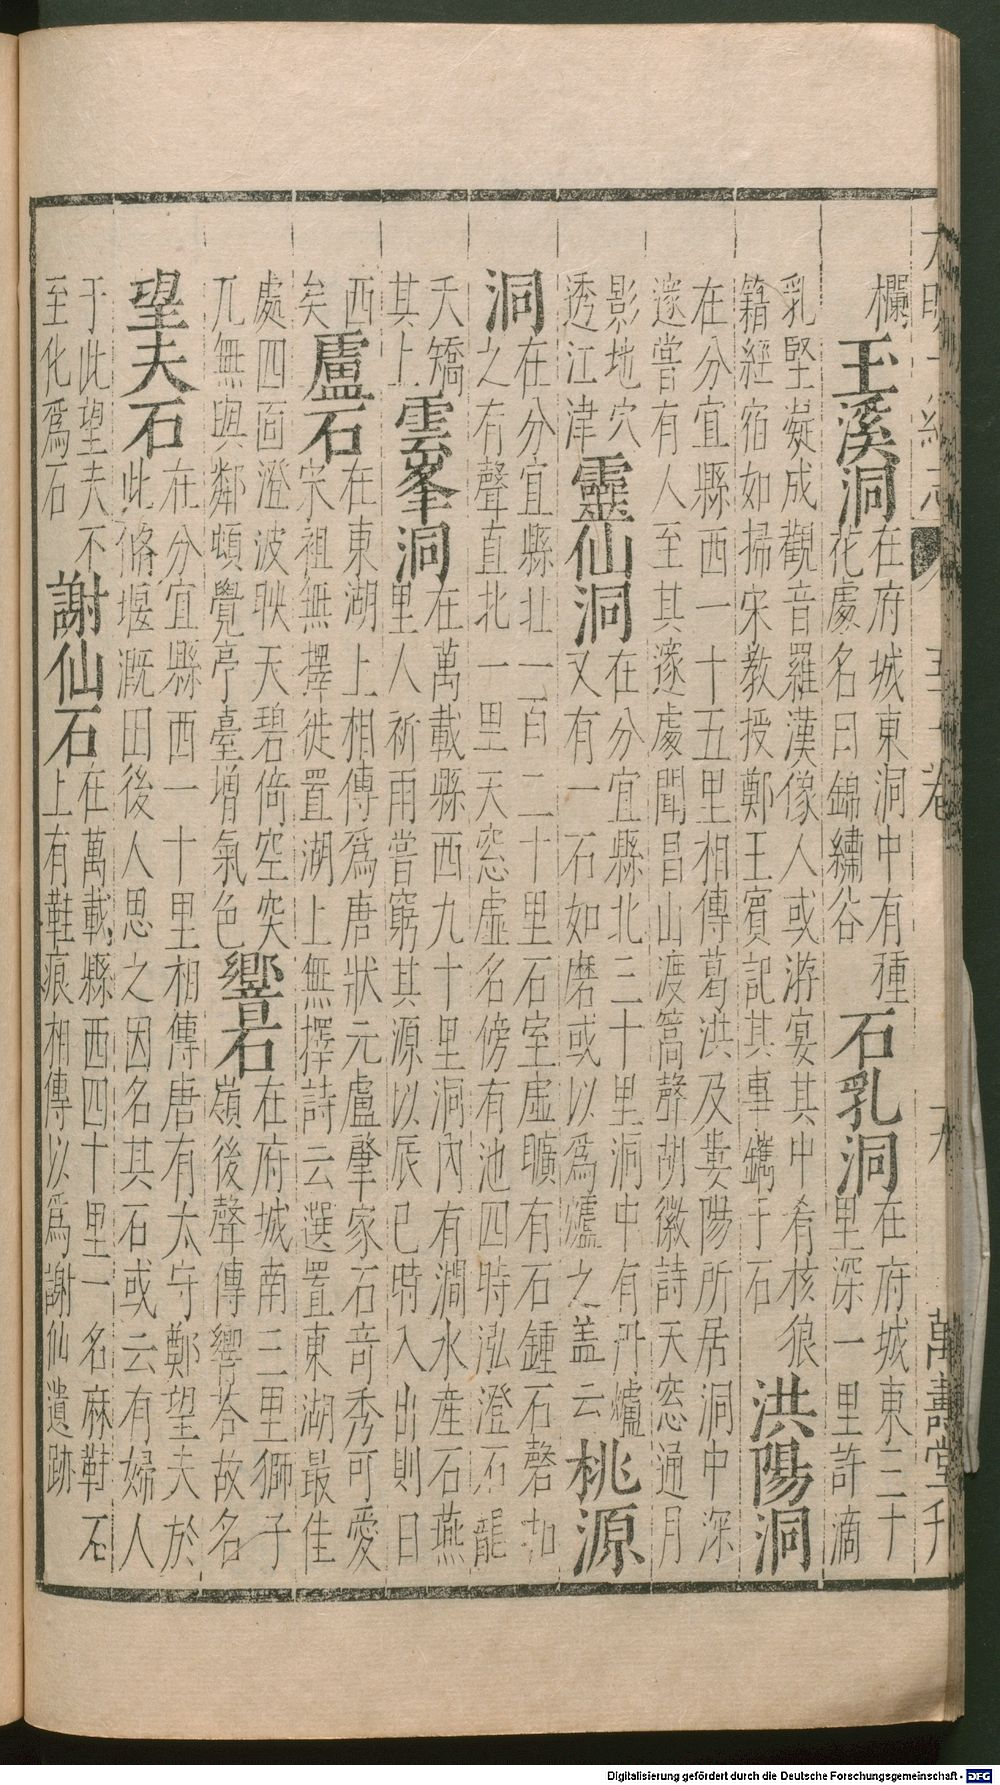 大明一統志 卷 九 萬壽堂刊
欄
玉溪洞
在府城東洞中有種
花處名曰錦繡谷
石乳洞
在府城東三十
里深一里許滴
乳堅凝成觀音羅漢像人或游宴其中肴核狼
籍經宿如掃宋教授鄭王賓記其事鐫于石
洪陽洞
在分宜縣西一十五里相傳葛洪及婁陽所居洞中深
邃嘗有人至其邃處聞昌山渡篙聲胡徽詩天窓通月
影地穴
透江津
靈仙洞
在分宜縣北三十里洞中有丹爐
又有一石如磨或以爲爐之盖云
桃源
洞
在分宜縣北一百二十里石室虛曠有石鍾石磬如
之有聲直北一里天窓虛名傍有池四時泓澄石龍
夭矯
其上
雲峯洞
在萬載縣西九十里洞內有澗水産石燕
里人祈雨嘗窮其源以辰巳時入出則日
西
矣
盧石
在東湖上相傳爲唐狀元盧肇家石竒秀可愛
宋祖無擇徙置湖上無擇詩云選置東湖最佳
處四面澄波映天碧倚空突
兀無與鄰頓覺亭臺增氣色
響石
在府城南三里獅子
嶺後聲傳響荅故名
望夫石
在分宜縣西一十里相傳唐有太守鄭望夫於
此脩堰溉田後人思之因名其石或云有婦人
于此望夫不
至化爲石
謝仙石
在萬載縣西四十里一名麻鞋石
上有鞋痕相傳以爲謝仙遺跡
Digitalisierung gefördert durch die Deutsche Forschungsgemeinschaft - DFG